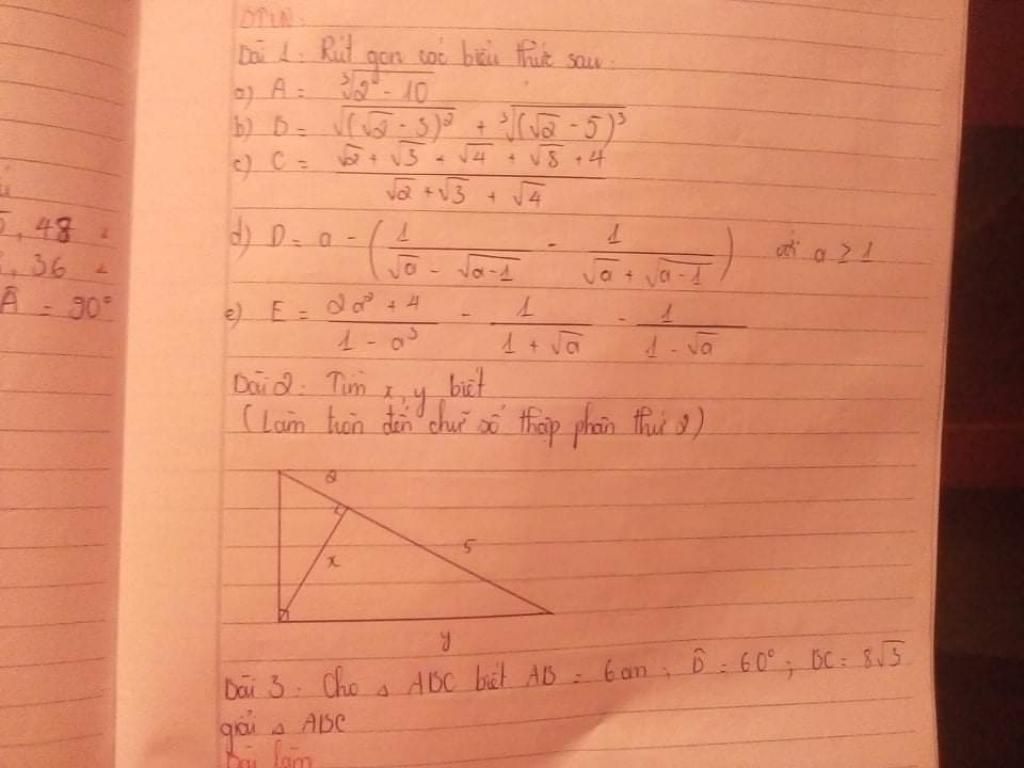 Bài 1: Rút gọn các biểu thức sau:
a) A = ∛(2⁰ - 10)
b) B = √((√2 - 3)²) + ∛((√2 - 5)³)
c) C = (√2 + √3 + √4 + √8 + 4) / (√2 + √3 + √4)
d) D = a - (1 / (√a - √(a-1)) - 1 / (√a + √(a-1))) với a ≥ 1
e) E = (2a² + 4) / (1 - a³) - 1 / (1 + √a) - 1 / (1 - √a)
Bài 2: Tìm x, y biết
(Làm tròn đến chữ số thập phân thứ 2)
2
5
x
y
Bài 3: Cho Δ ABC biết AB = 6cm; B̂ = 60°; BC = 8√3
giải Δ ABC
Bài làm
, 48
, 36
Â = 90°